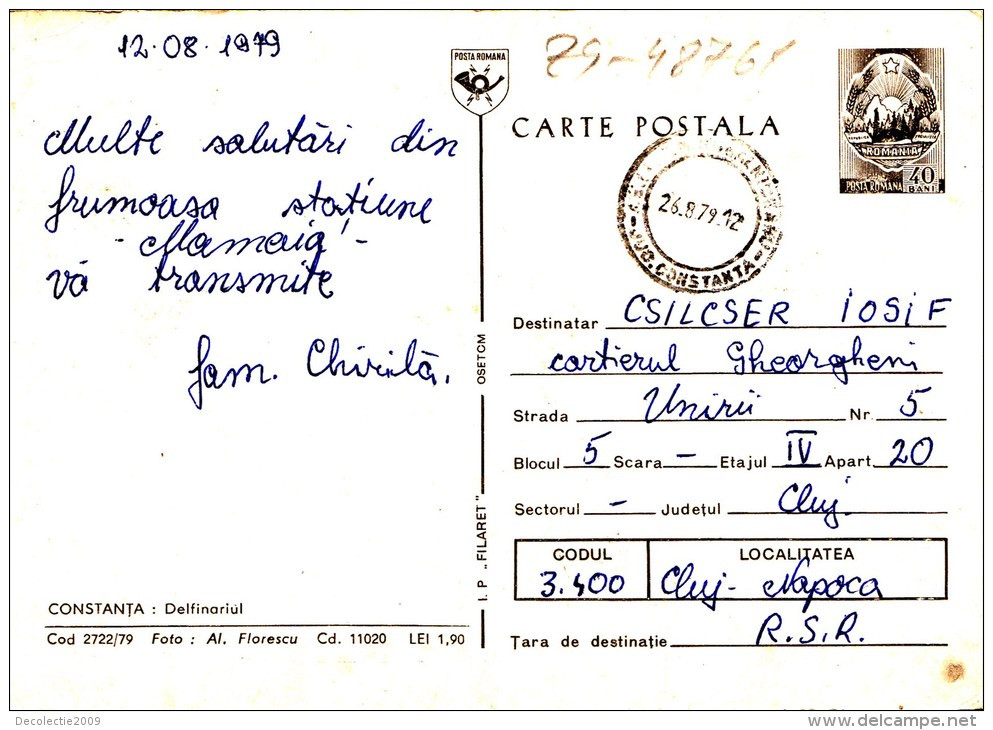 12.08.1979
79-48761
POSTA ROMANA
CARTE POSTALA
ROMANIA
POSTA ROMANA 40 BANI
26.8.79.12
JUD. CONSTANTA
Multe salutări din
frumoasa stațiune
- Mamaia! -
vă transmite
fam. Chirilă.
Destinatar CSILCSER IOSIF
cartierul Gheorgheni
Strada Unirii Nr. 5
Blocul 5 Scara - Etajul IV Apart. 20
Sectorul - Județul Cluj
CODUL LOCALITATEA
3.400 Cluj-Napoca
Țara de destinație R.S.R.
I. P „FILARET" OSETCM
CONSTANȚA : Delfinariul
Cod 2722/79 Foto : Al. Florescu Cd. 11020 LEI 1,90
Decolectie2009
www.delcampe.net